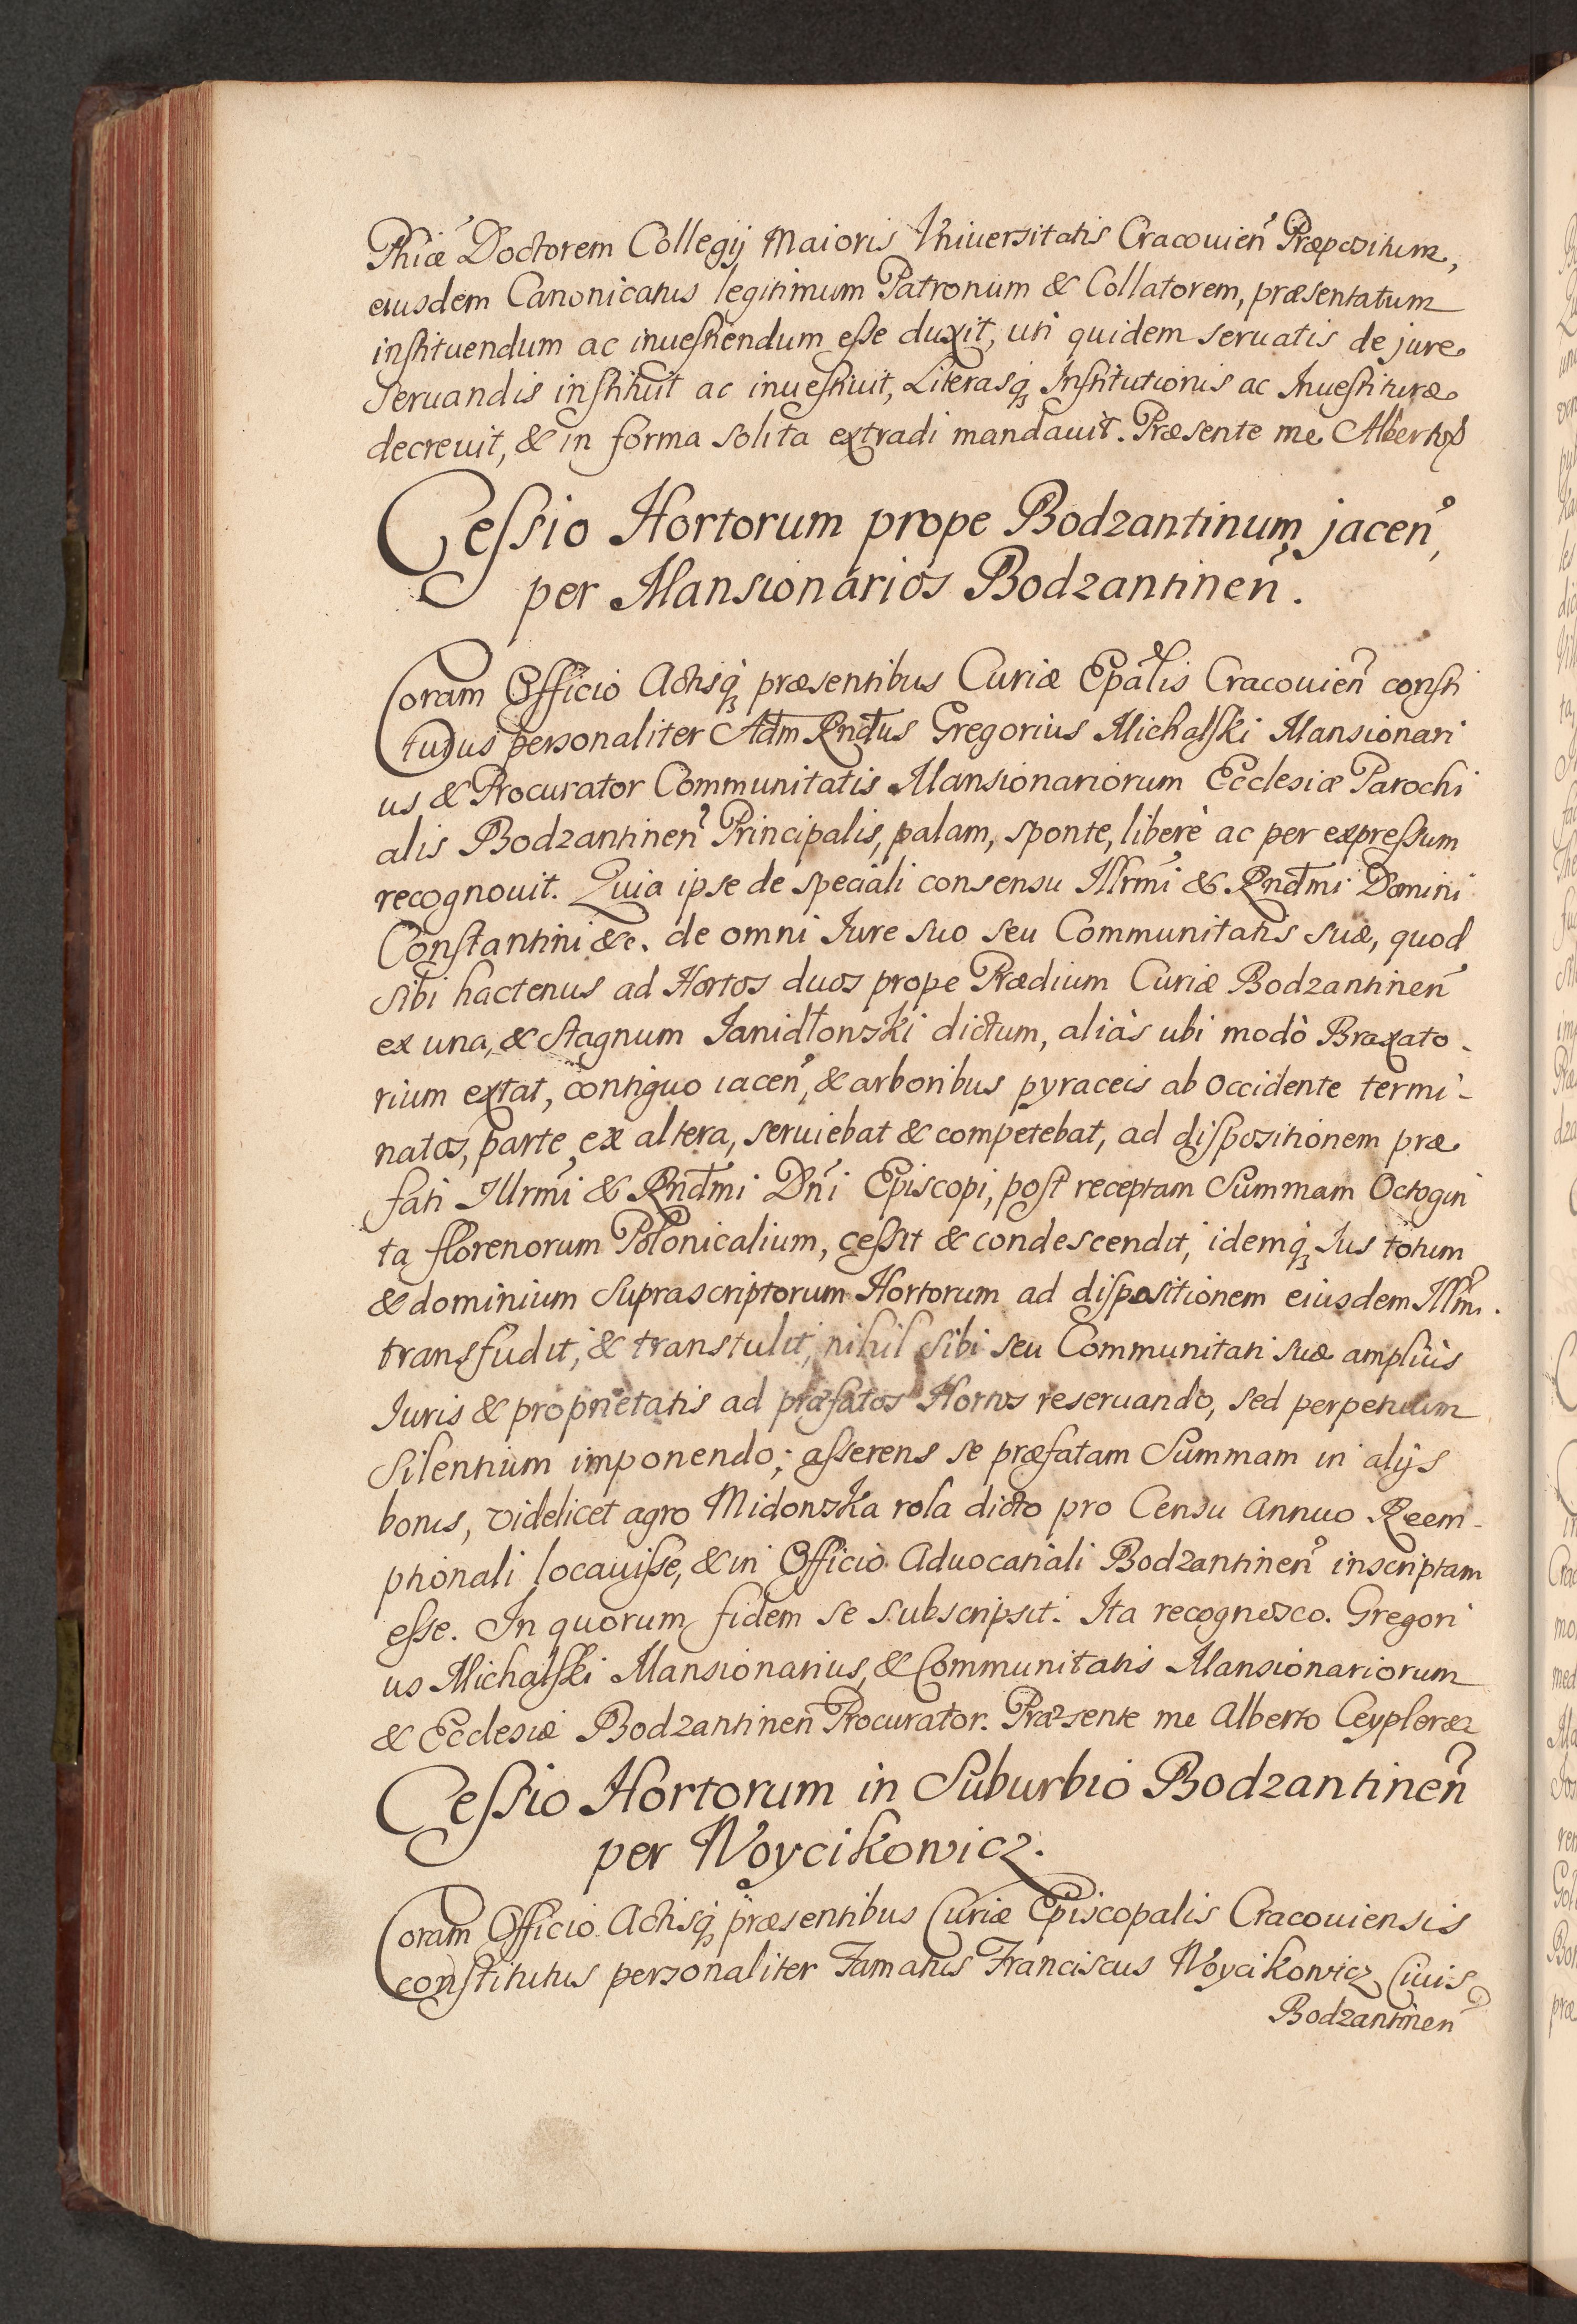 Phiæ Doctorem Collegij Maioris Vniuersitatis Cracouien̄ Præpositum,
eiusdem Canonicatus legitimum Patronum & Collatorem, præsentatum
instituendum ac inuestiendum esse duxit, uti quidem seruatis de jure
seruandis instituit ac inuestiuit, Literasq́ꝫ Institutionis ac Inuestituræ
decreuit, & in forma solita extradi mandauit. Præsente me Alberto
Cessio Hortorum prope Bodzantinum jacen̄,
per Mansionários Bodzantinen̄.
Coram Officio Actisq́ꝫ præsentibus Curiæ Ep̄alis Cracouien̄ consti
tutus personaliter Adm Rn̄dus Gregorius Michalski Mansionari
us & Procurator Communitatis Mansionariorum Ecclesiæ Parochi
alis Bodzantinen̄ Principalis, palam, sponte, liberè ac per expressum
recognouit. Quia ipse de speciali consensu Illrm̄i & Rn̄dmi Domini
Constantini &c. de omni Iure suo seu Communitatis suæ, quod
sibi hactenus ad Hortos duos prope Prædium Curiæ Bodzantinen̄
ex una, & Stagnum Ianidłowski dictum, aliàs ubi modò Braxato-
rium extat, contiguo iacen̄, & arboribus pyraceis ab occidente termi-
natos, parte ex altera, seruiebat & competebat, ad dispositionem præ
fati Illrm̄i & Rn̄dmi Dn̄i Episcopi, post receptam Summam Octogin
ta florenorum Polonicalium, cessit & condescendit, idemq́ꝫ Ius totum
& dominium suprascriptorum Hortorum ad dispositionem eiusdem Illm̄i.
transfudit, & transtulit, nihil sibi seu Communitati suæ ampliùs
Iuris & proprietatis ad præfatos Hortos reseruando, sed perpetuum
silentium imponendo; asserens se præfatam Summam in alijs
bonis, videlicet agro Midowska rola dicto pro Censu annuo Reem-
ptionali locauisse, & in Officio Aduocatiali Bodzantinen̄ inscriptam
esse. In quorum fidem se subscripsit. Ita recognosco. Gregori
us Michalski Mansionarius, & Communitatis Mansionariorum
& Ecclesiæ Bodzantinen̄ Procurator. Præsente me Alberto
Cessio Hortorum in Suburbio Bodzantinen̄
per Woycikowicz.
Coram Officio Actisq́ꝫ præsentibus Curiæ Episcopalis Cracouiensis
constitutus personaliter Famatus Franciscus Woycikowicz Ciuis
Bodzantinen̄